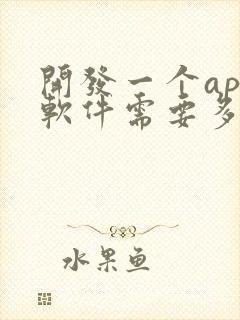 開發一个ap
軟件需要多
水果鱼